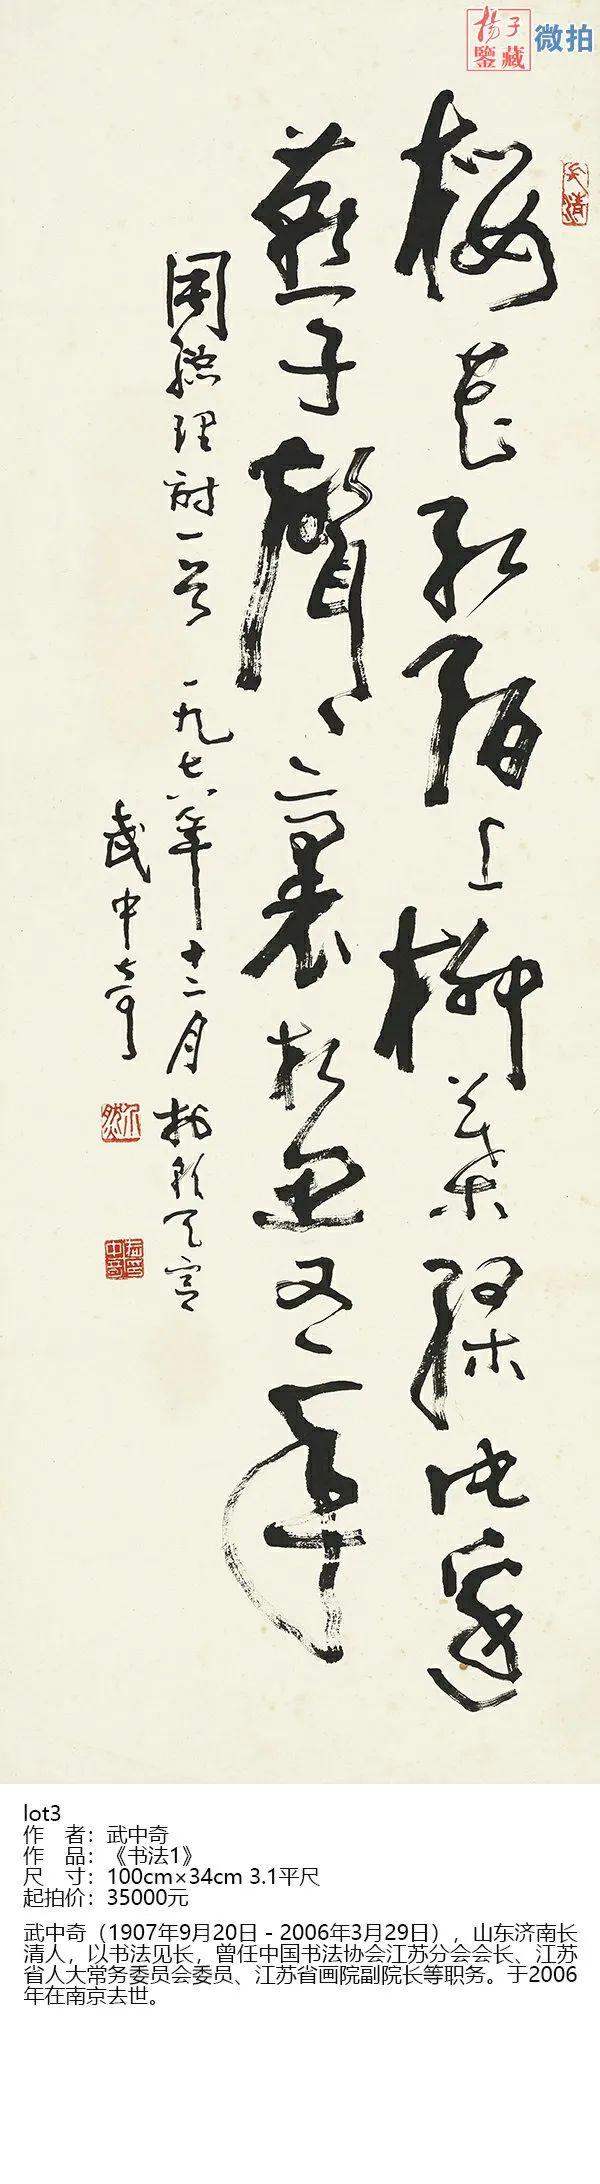 揚子
鑒藏
微拍
樱花红陌上柳葉绿池邊
燕子聲〻裏相思又一年
周總理詩一首 一九七八年十二月於朝天宫
武中奇
lot3
作　者：武中奇
作　品：《书法1》
尺　寸：100cm×34cm 3.1平尺
起拍价：35000元
武中奇（1907年9月20日 - 2006年3月29日），山东济南长
清人，以书法见长，曾任中国书法协会江苏分会会长、江苏
省人大常务委员会委员、江苏省画院副院长等职务。于2006
年在南京去世。